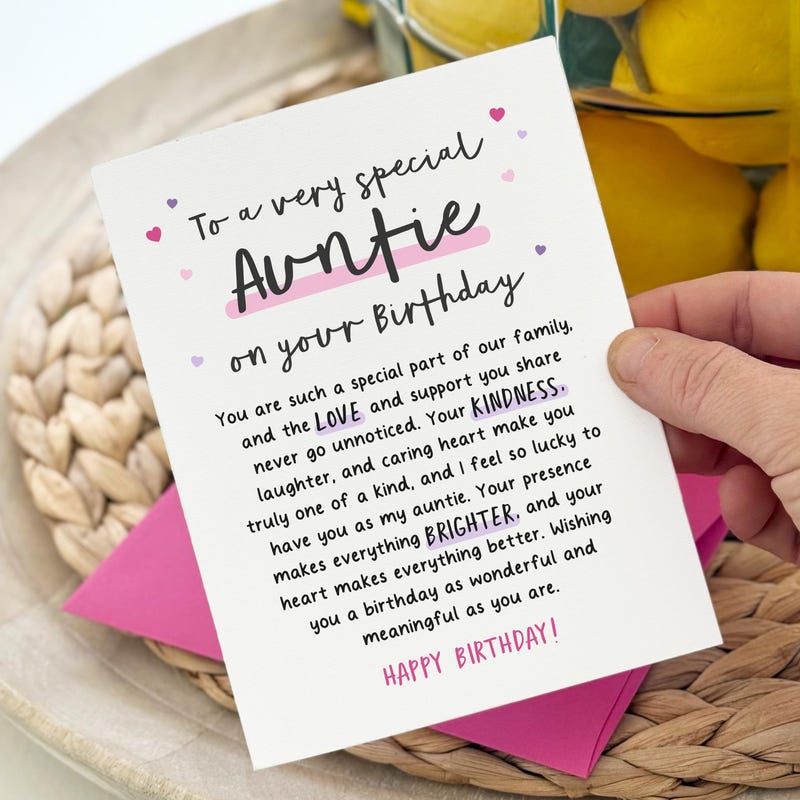 To a very special
Auntie
on your Birthday
You are such a special part of our family,
and the LOVE and support you share
never go unnoticed. Your KINDNESS,
laughter, and caring heart make you
truly one of a kind, and I feel so lucky to
have you as my auntie. Your presence
makes everything BRIGHTER, and your
heart makes everything better. Wishing
you a birthday as wonderful and
meaningful as you are.
HAPPY BIRTHDAY!